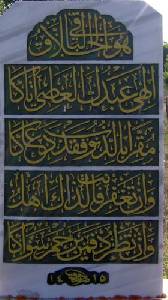 هو الخلاق الباقي
الهي عبدك العاصي أتاكا
مقرا بالذنوب وقد دعاكا
وإن تغفر فأنت لذاك أهل
وإن تطرد فمن يرحم سواكا
١٤١٥